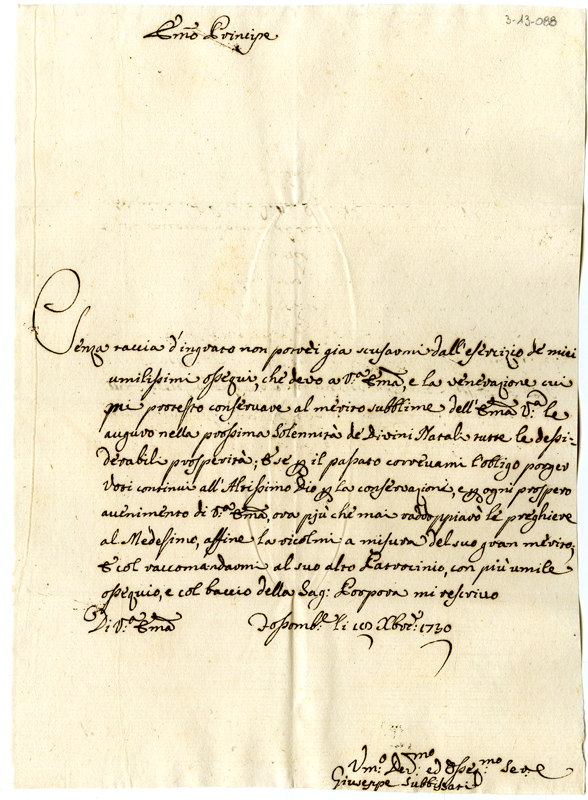 3-13-088
Em̃o Principe
Senza taccia d'ingrato non potrei già scusarmi dall'esercizio de miei
umilissimi ossequi, che devo a V.ª Em̃a, e la venerazione cui
mi protesto conservare al merito subblime dell'Em̃a V.ª le
auguro nella prossima Solennità de Divini Natali tutte le dessi-
derabili prosperità; E se p il passato correvami l'obligo porger
Voti continui all'Altissimo Dio p la conservazione, e p ogni prospero
avenimento di V.ª Em̃a, ora più che mai raddoppiarò le preghiere
al Medesimo, affine la ricolmi a misura del suo gran merito;
E col raccomandarmi al suo alto Patrocinio, con più umile
ossequio, e col baccio della Sag: Porpora mi rescrivo
Di V.ª Em̃a Li Xbre: 1730
Um.º Dev.mo ed Osseq.mo
Giuseppe Subbissati